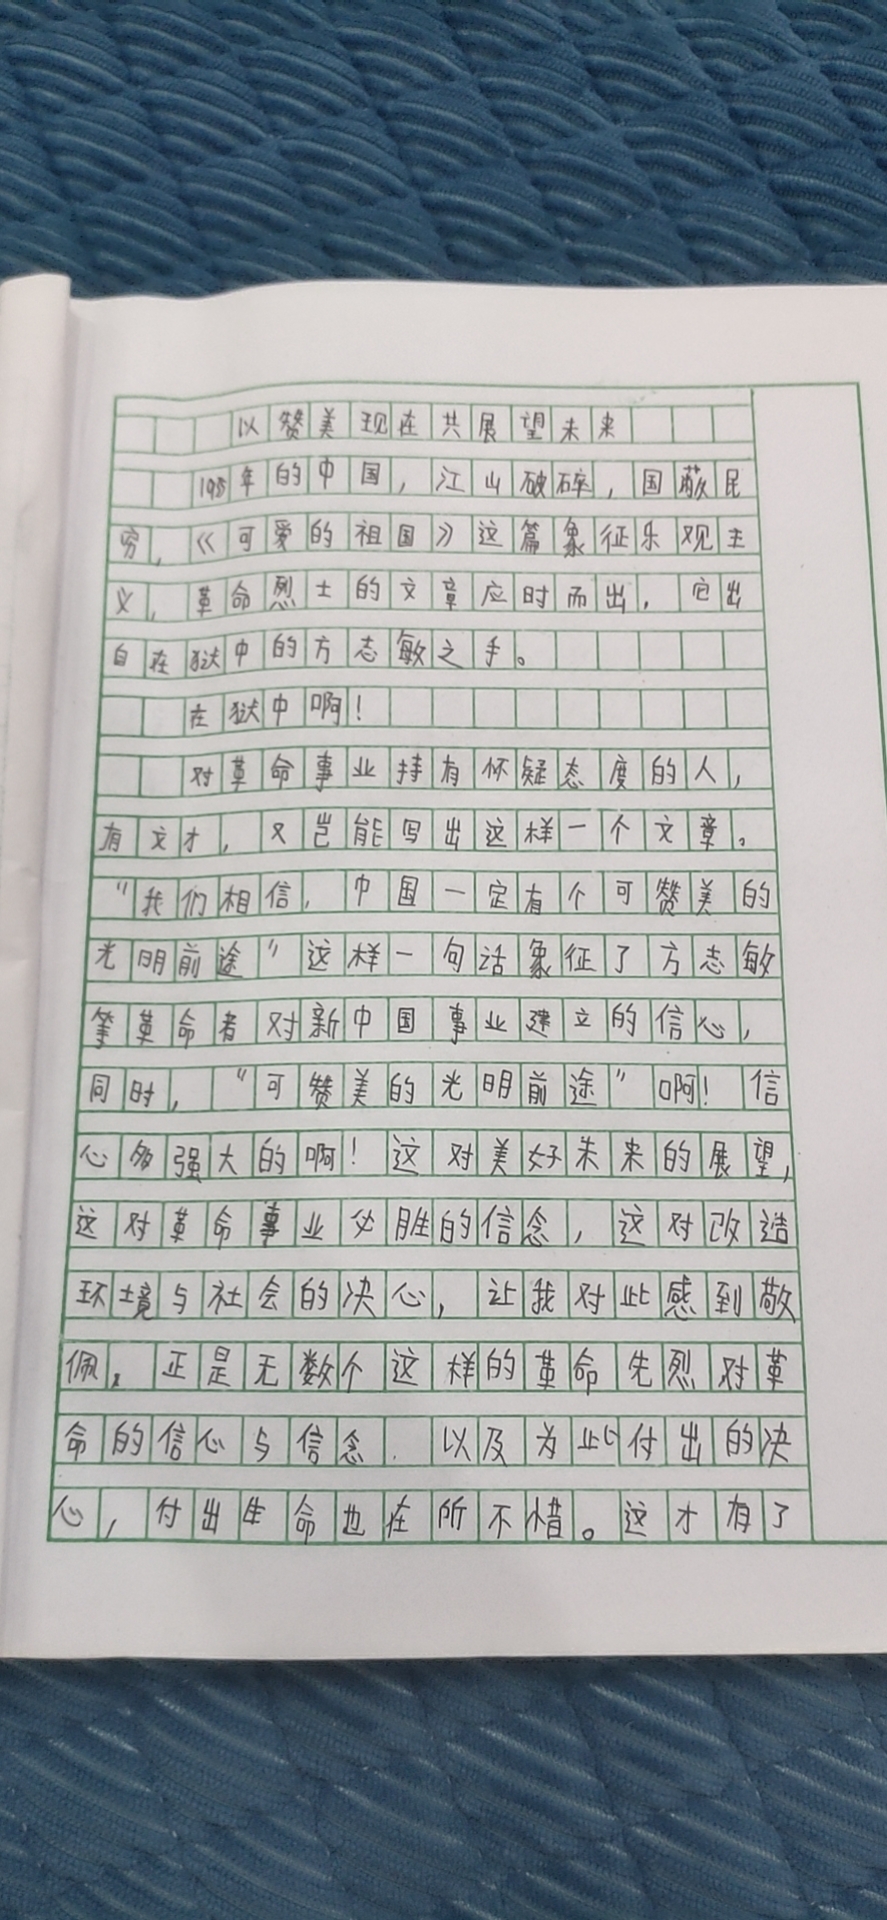 以赞美现在共展望未来
1935年的中国，江山破碎，国蔽民
穷，《可爱的祖国》这篇象征乐观主
义，革命烈士的文章应时而出，它出
自在狱中的方志敏之手。
在狱中啊！
对革命事业持有怀疑态度的人，
有文才，又岂能写出这样一个文章。
“我们相信，中国一定有个可赞美的
光明前途”这样一句话象征了方志敏
等革命者对新中国事业建立的信心，
同时，“可赞美的光明前途”啊！信
心多强大的啊！这对美好未来的展望，
这对革命事业必胜的信念，这对改造
环境与社会的决心，让我对此感到敬
佩，正是无数个这样的革命先烈对革
命的信心与信念．以及为此付出的决
心，付出生命也在所不惜。这才有了